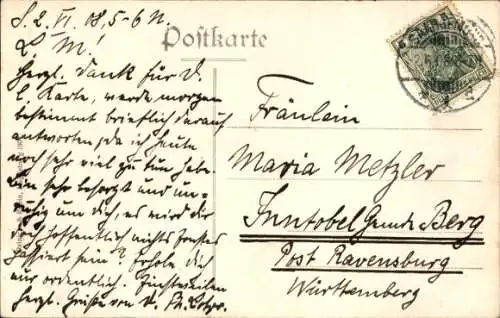 S. 2. VI. 08. 5-6 N.
Postkarte
L. M!
Herzl. Dank für D.
l. Karte, werde morgen
bestimmt brieflich darauf
antworten, da ich heute
noch sehr viel zu tun habe.
Bin sehr besorgt und un-
ruhig um Dich, es wird dir
doch hoffentlich nichts ernstes
passiert sein? Erhole dich
nur ordentlich. Einstweilen
herzl. Grüße von d.
Fräulein
Maria Metzler
Inntobel Gemde Berg
Post Ravensburg
Württemberg